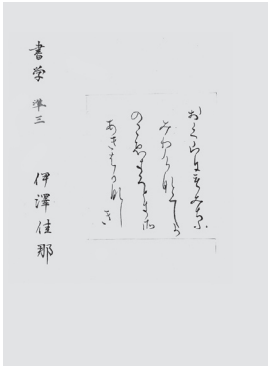 おくやまにもみちふ
みわけなくしか
のこゑきくときそ
あきはかなしき
書学 準三 伊澤佳那